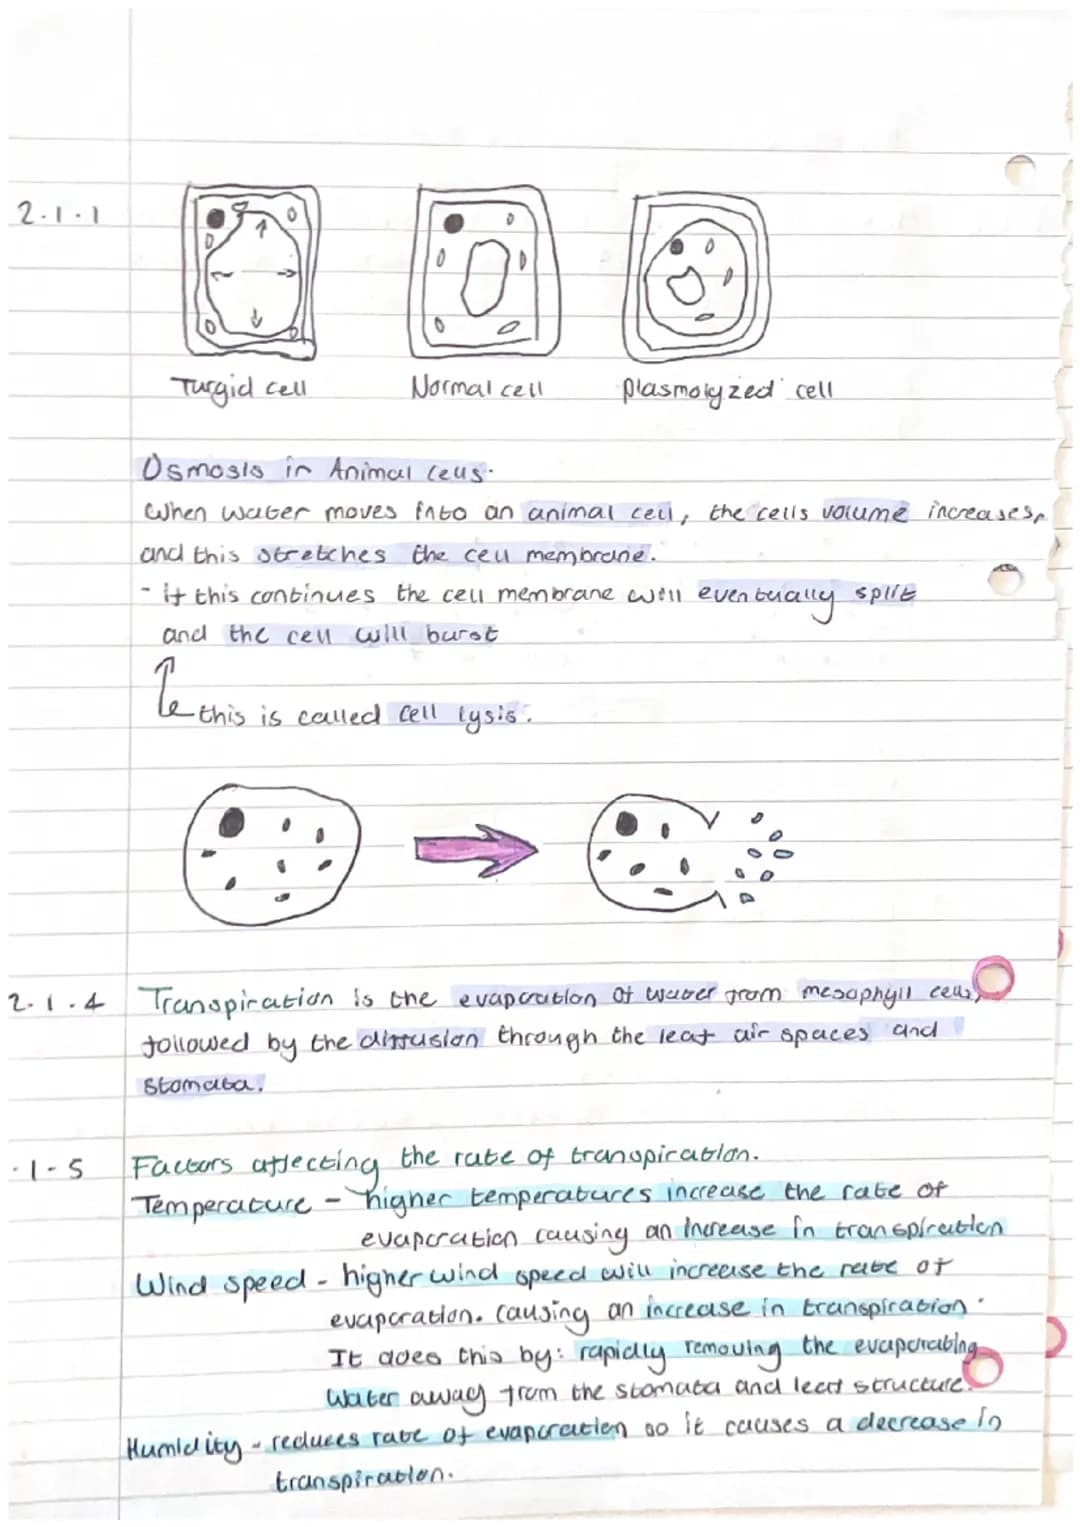 2.1.1
Turgid cell Normal cell Plasmolyzed cell
Osmosis in Animal cells.
When water moves into an animal cell, the cells volume increases,
and this stretches the cell membrane.
- if this continues the cell membrane will eventually split
and the cell will burst
this is called cell lysis.
2.1.4 Transpiration is the evaporation of water from mesophyll cells,
followed by the diffusion through the leaf air spaces and
stomata.
.1-5 Factors affecting the rate of transpiration.
Temperature - higher temperatures increase the rate of
evaporation causing an increase in transpiration
Wind speed - higher wind speed will increase the rate of
evaporation. causing an increase in transpiration.
It does this by: rapidly removing the evaporating
water away from the stomata and leaf structure.
Humidity - reduces rate of evaporation so it causes a decrease in
transpiration.